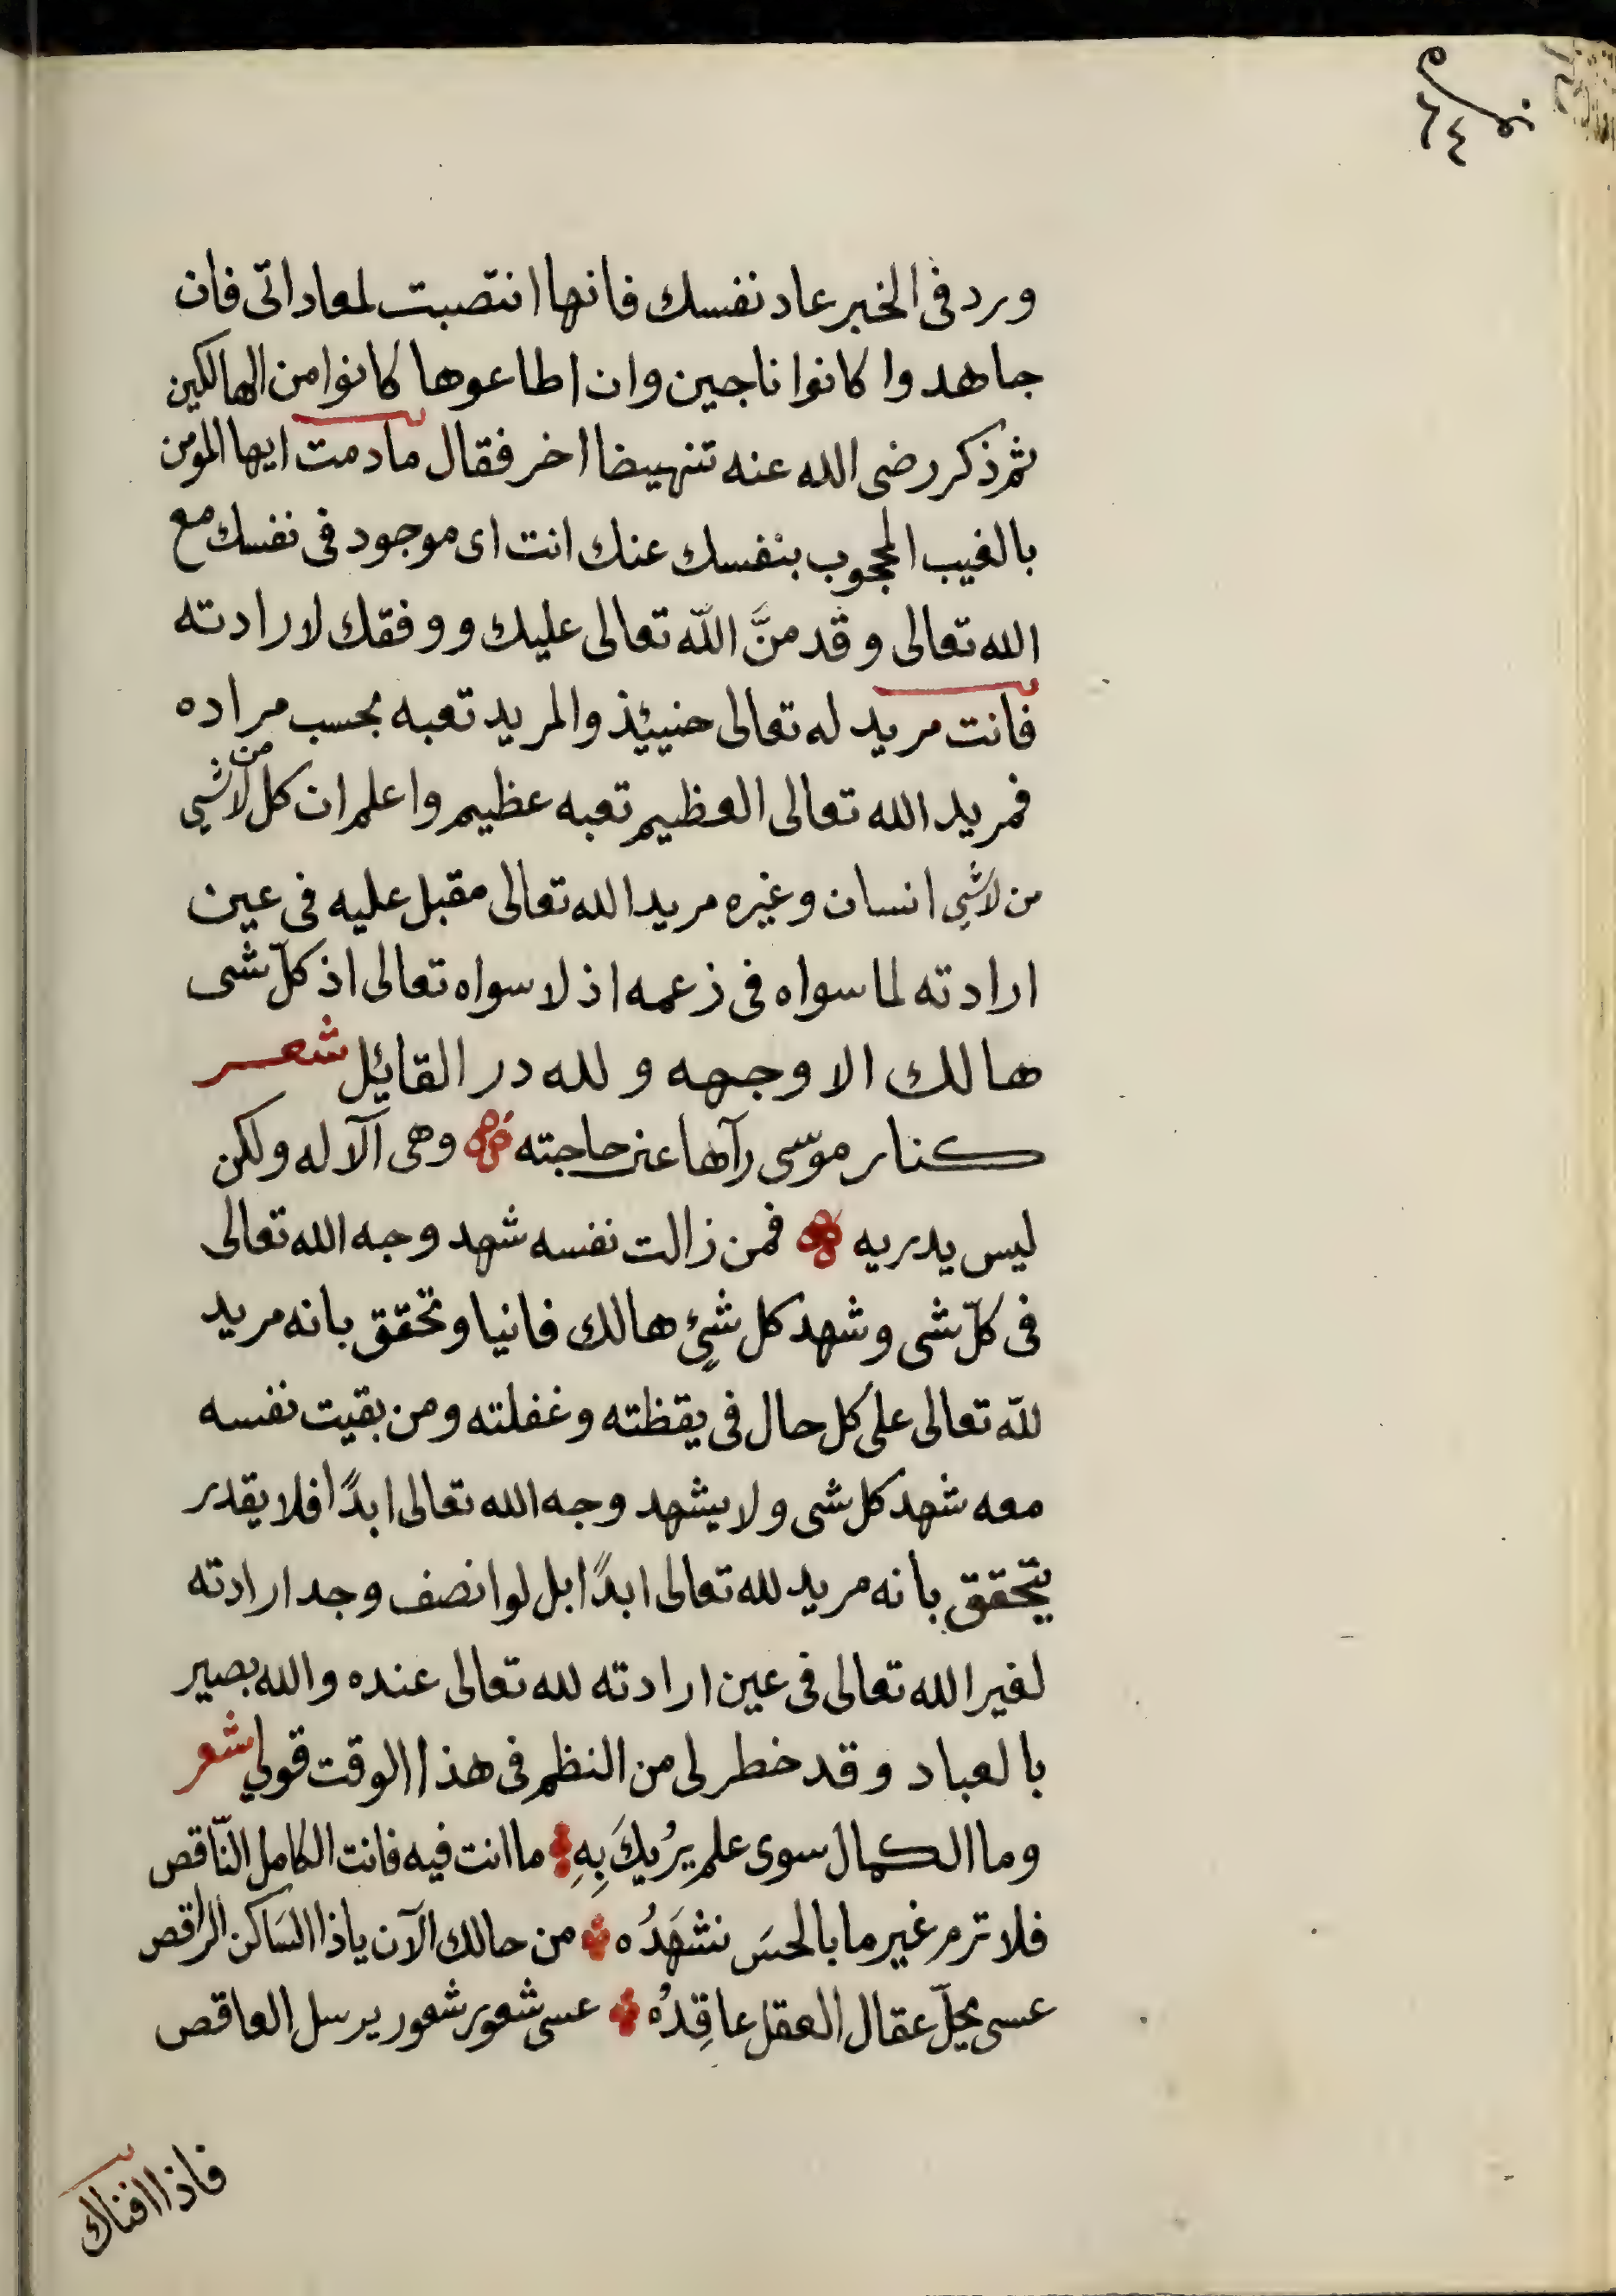 نمره
٦٤
ورد فى الخبر عاد نفسك فانها انتصبت لمعاداتى فان
جاهدوا كانوا ناجين وان اطاعوها كانوا من الهالكين
ثم ذكر رضى الله عنه تنهيضا اخر فقال مادمت ايها المومن
بالغيب المحجوب بنفسك عنك انت اى موجود فى نفسك مع
الله تعالى وقد منَّ اللّه تعالى عليك ووفقك لارادته
فانت مريد له تعالى حنييئذ والمريد تعبه بحسب مراده
فمريد الله تعالى العظيم تعبه عظيم واعلم ان كل من لاشي
من لاشي انسان وغيره مريد الله تعالى مقبل عليه فى عين
ارادته لما سواه فى زعمه اذ لا سواه تعالى اذ كلّ شى
هالك الا وجهه ولله در القائل شعر
كنار موسى رآها عند حاجته وهى الآله ولكن
ليس يدريه فمن زالت نفسه شهد وجه الله تعالى
فى كلّ شى وشهد كل شئ هالك فانيا وتحقق بانه مريد
للّه تعالى على كل حال فى يقظته وغفلته ومن بقيت نفسه
معه شهد كل شى ولا يشهد وجه الله تعالى ابدًا فلا يقدر
يتحقق بانه مريد لله تعالى ابدًا بل لو انصف وجد ارادته
لغير الله تعالى فى عين ارادته لله تعالى عنده والله بصير
بالعباد وقد خطر لى من النظم فى هذا الوقت قولي شعر
وما الكمال سوى علم يرُيكَ بِهِ ما انت فيه فانت الكامل النّاقص
فلا ترم غير ما بالحسَ نشهَدُه من حالك الآن ياذا السَاكن الراقص
عسى يحلّ عقال العقل عاقِدُه عسى شعور شعور يرسل العاقص
فاذا افناك